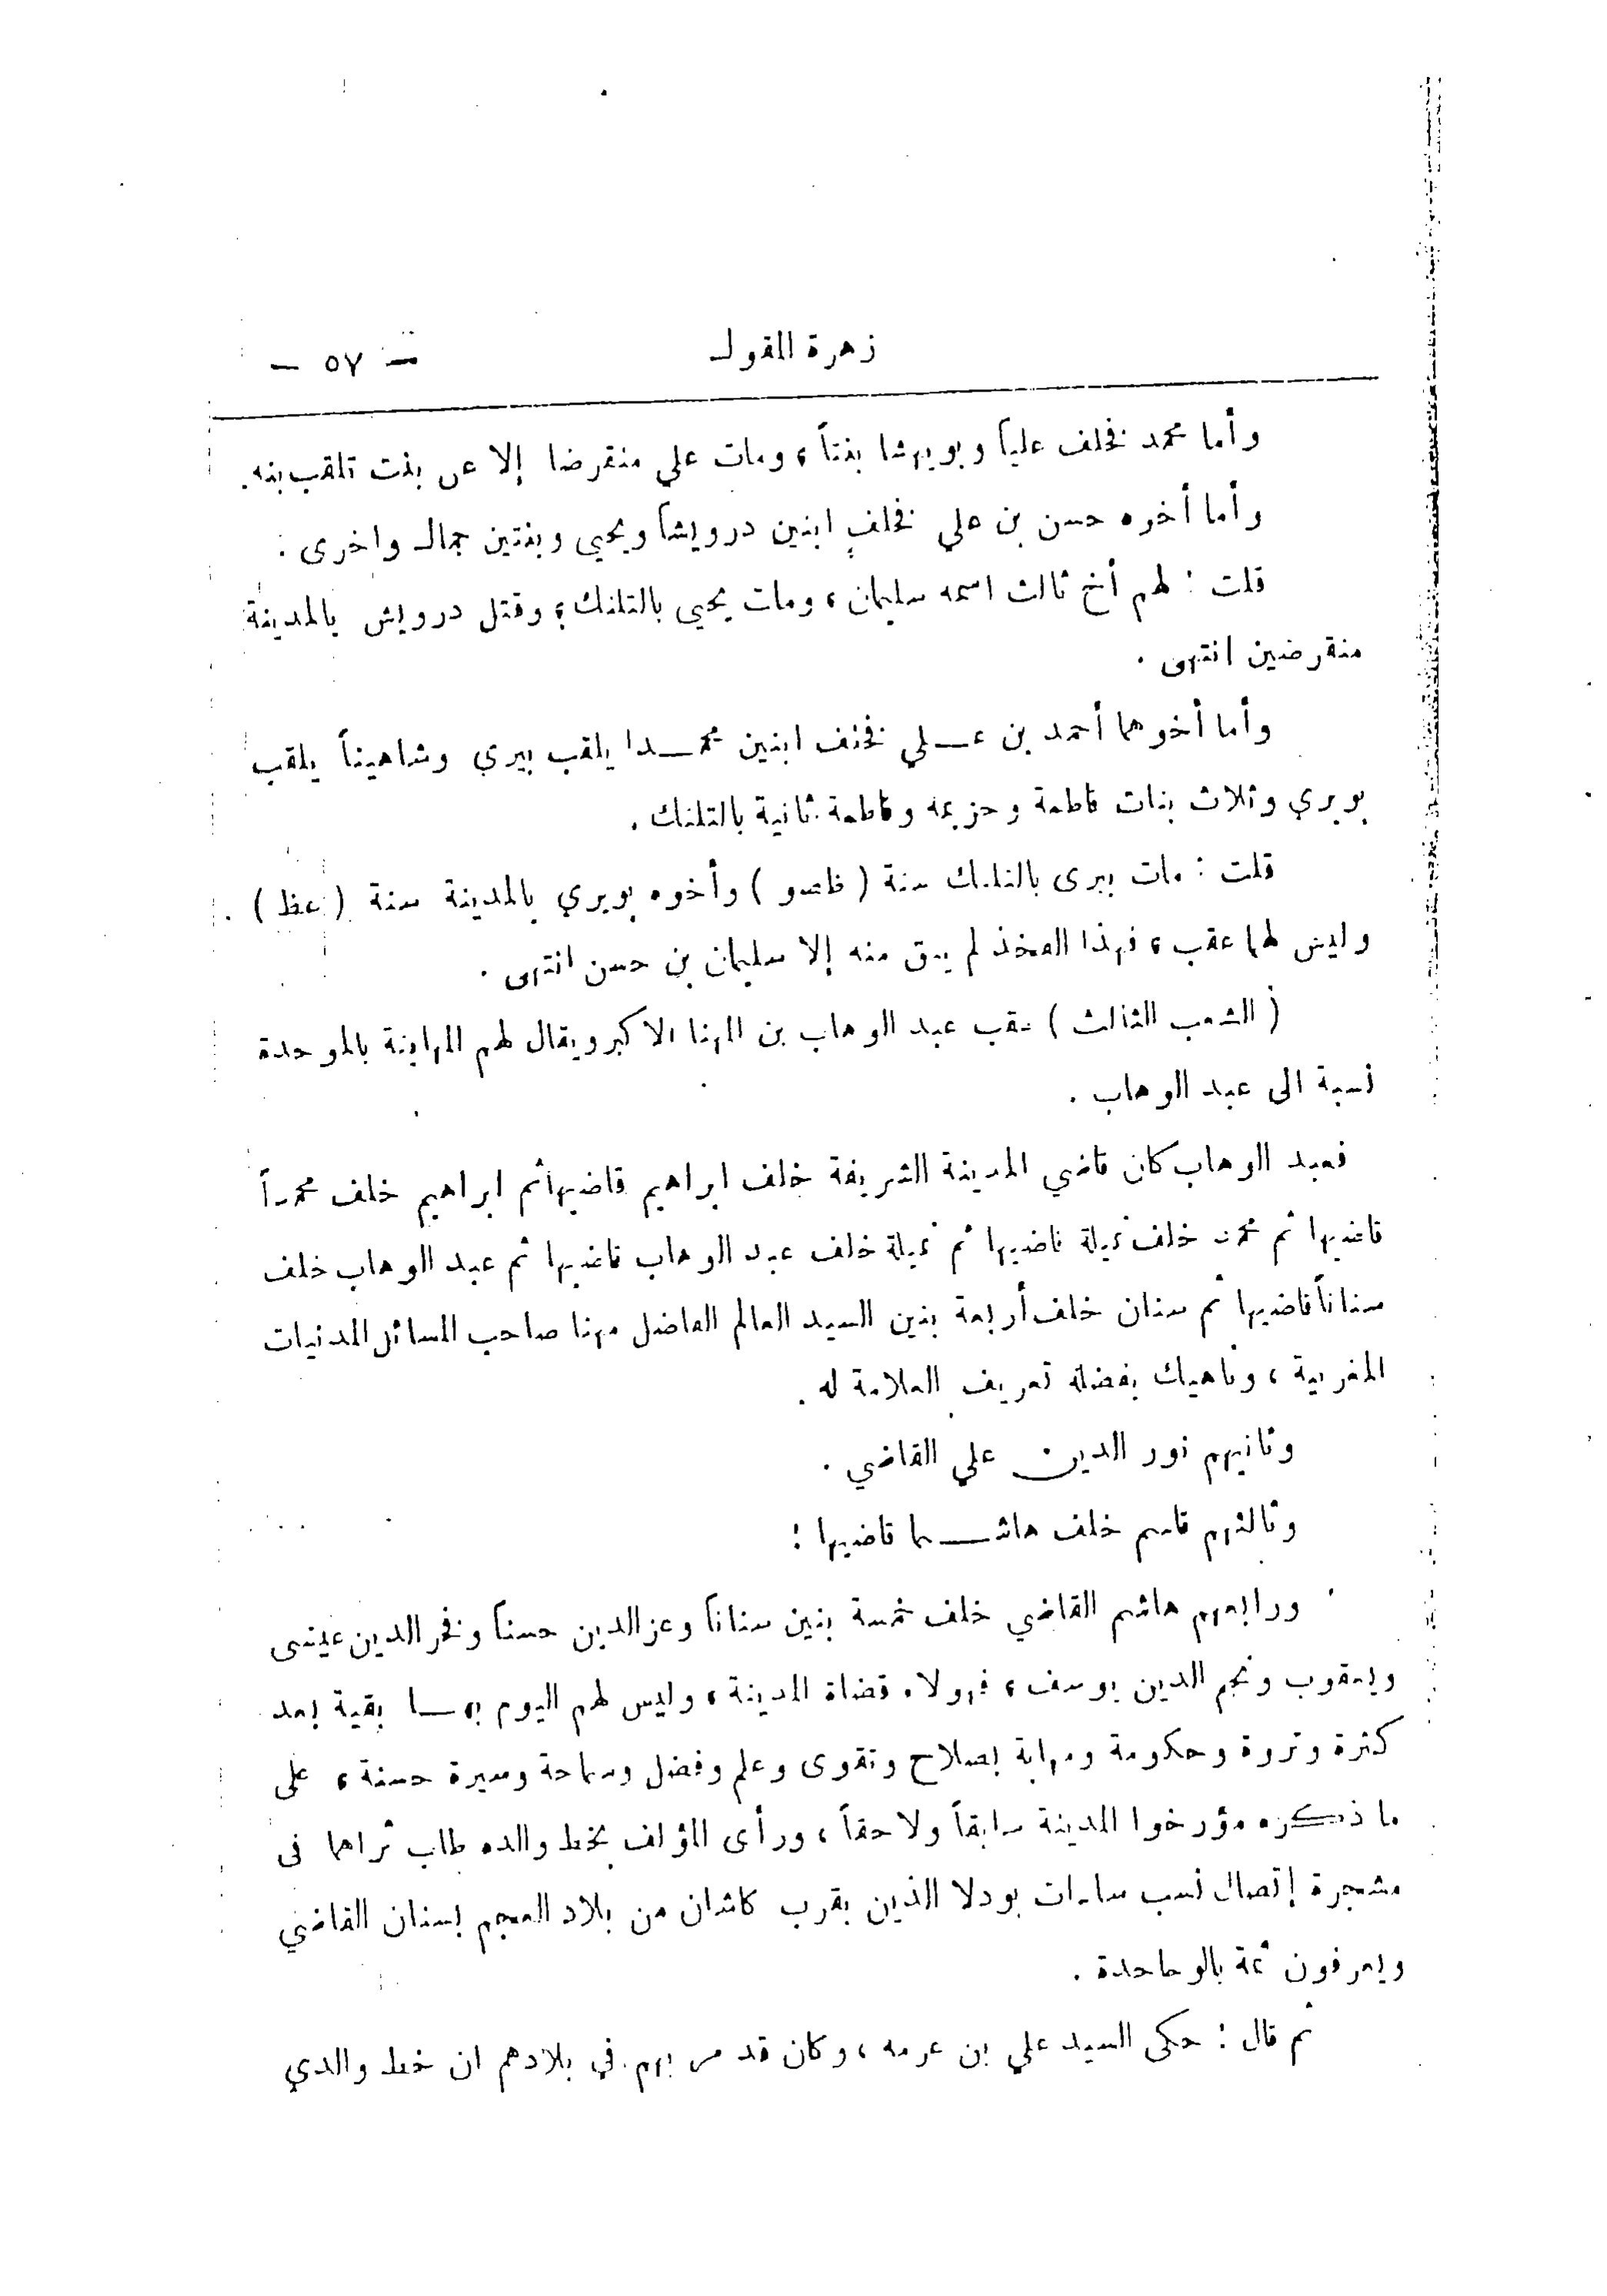 زهرة القول
— ٥٧ —
وأما محمد فخلف علياً وبويهشا بنتاً ، ومات علي منقرضا إلا عن بنت تلقب بنه.
وأما أخوه حسن بن علي فخلف ابنين درويشاً ويحيى وبنتين جمال واخرى .
قلت : لهم أخ ثالث اسمه سليمان ، ومات يحيى بالتلنك ، وقتل درويش بالمدينة
منقرضين انتهى .
وأما أخوهما أحمد بن عـلي فخلف ابنين محمـدا يلقب بيري وشاهيناً يلقب
بوبري وثلاث بنات فاطمة وحزيمه وفاطمة ثانية بالتلنك .
قلت : مات بيرى بالتلنك سنة ( ) وأخوه بوبري بالمدينة سنة ( عظ ) .
وليس لهما عقب ، فهذا الفخذ لم يبق منه إلا سليمان بن حسن انتهى .
( الشعب الثالث ) عقب عبد الوهاب بن المهنا الاكبر ويقال لهم الوهابنة بالموحدة
نسبة الى عبد الوهاب .
فعبد الوهاب كان قاضي المدينة الشريفة خلف ابراهيم قاضيها ثم ابراهيم خلف محمداً
قاضيها ثم محمد خلف نميلة قاضيها ثم نميلة خلف عبد الوهاب قاضيها ثم عبد الوهاب خلف
سناناً قاضيها ثم سنان خلف أربعة بنين السيد العالم الفاضل مهنا صاحب المسائل المدنيات
المغربية ، وناهيك بفضله تعريف العلامة له .
وثانيهم نور الدين علي القاضي .
وثالثهم قاسم خلف هاشـما قاضيها :
ورابعهم هاشم القاضي خلف خمسة بنين سناناً وعز الدين حسناً وفخر الدين عيسى
ويعقوب ونجم الدين يوسف ، فهولاء قضاة المدينة ، وليس لهم اليوم بهـا بقية بعد
كثرة وثروة وحكومة ومهابة بصلاح وتقوى وعلم وفضل وسماحة وسيرة حسنة ، على
ما ذكره مؤرخوا المدينة سابقاً ولاحقاً ، ورأى المؤلف بخط والده طاب ثراهما فى
مشجرة إتصال نسب سادات بودلا الذين بقرب كاشان من بلاد العجم بسنان القاضي
ويعرفون ثمة بالوحاحدة .
ثم قال : حكى السيد علي بن عرمه ، وكان قد مر بهم في بلادهم ان خط والدي